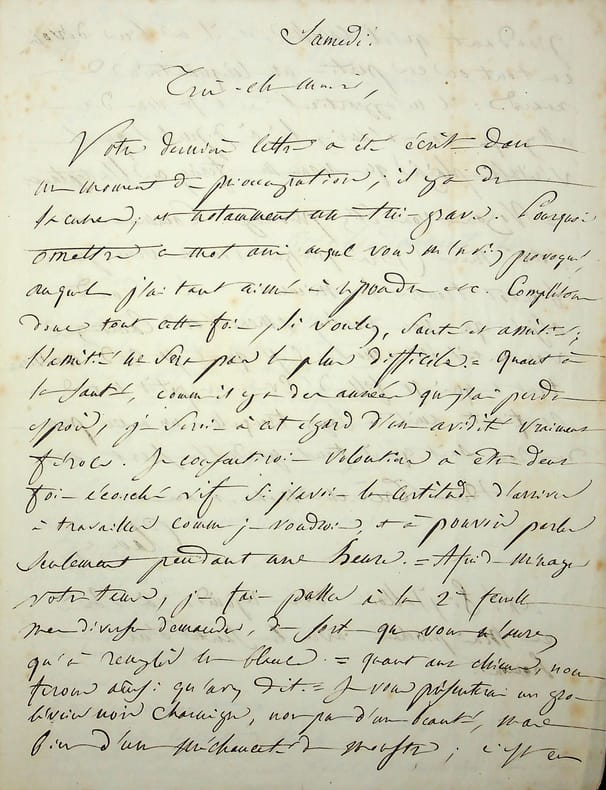 Samedi.
Très-cher ami,
Votre dernière lettre a été écrite dans
un moment de préoccupation; il y a des
lacunes; et notamment une très-grave. Pourquoi
omettre ce mot ami auquel vous m'aviez provoqué,
auquel j'ai tant aimé à répondre etc. Complétons
donc tout cette fois, si voulez, santé et amitié;
l'amitié ne sera pas le plus difficile. = Quant à
la santé, comme il y a des années que j'ai perdu
espoir, je serai à cet égard d'une avidité vraiment
féroce. Je consentirois volontiers à être deux
fois écorché vif si j'avois la certitude d'arriver
à travailler comme je voudrois, et à pouvoir parler
seulement pendant une heure. = Afin de ménager
votre tems, je fais passer à la 2e feuille
mes diverses demandes, de sorte que vous n'aurez
qu'à remplir les blancs. = quant aux chiens, nous
ferons ainsi qu'avez dit. = Je vous présenterai un gros
noir, non pas d'une beauté, mais
bien d'une méchanceté de monstre; c'est en